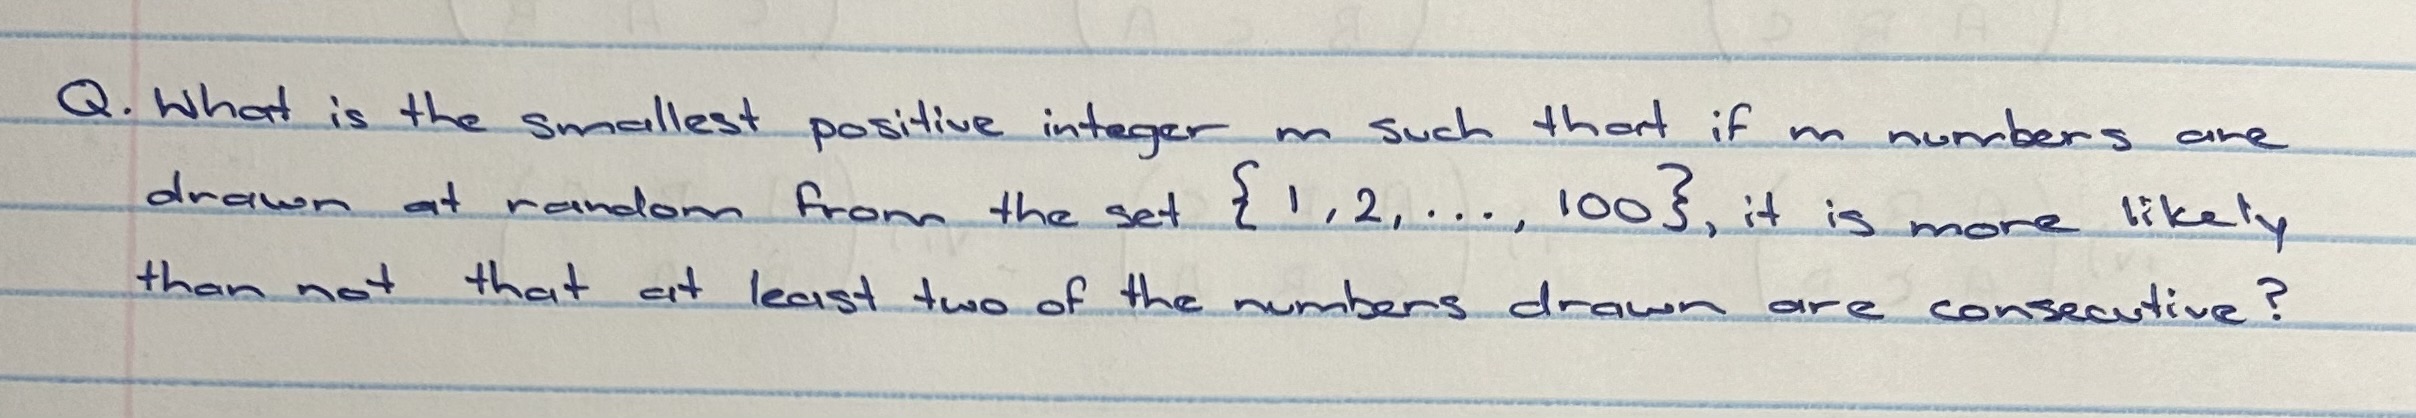 Q. What is the smallest positive integer m such that if m numbers are
drawn at random from the set {1, 2, ..., 100}, it is more likely
than not that at least two of the numbers drawn are consecutive?